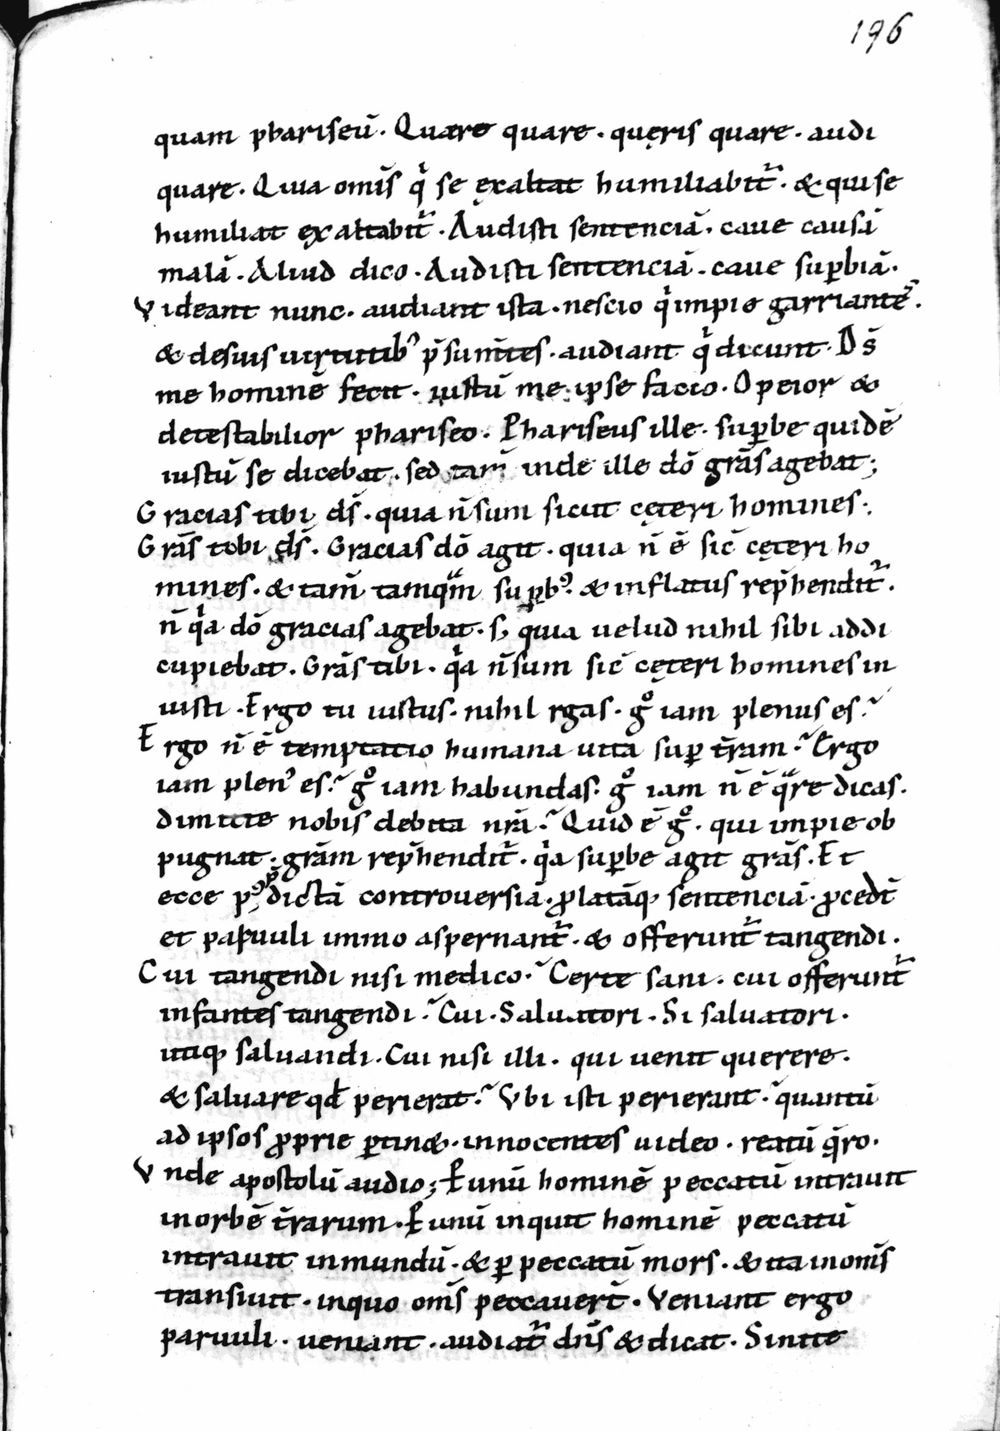 196
quam phariseū. Quare quare. quęris quare. audi
quare. Quia om̄s qͥ se exaltat humiliabit᷑. & qui se
humiliat exaltabit᷑. Audisti sentenciā. caue causā
malā. Aliud dico. Audisti sentenciā. caue sup̱biā.
Videant nunc. audiant ista. nescio qͥ impie garriantes.
& de suis uirtutibꝰ p̄sum̄tes. audiant qͥ dicunt. Ds̄
me hominē fecit. iustū me ipse facio. O peior &
detestabilior phariseo. Phariseus ille. suꝑbe quidē
iustū se dicebat. sed tam̄ inde ille dō grās agebat;
Gracias tibi ds̄. quia n̄ sum sicut cęteri homines.
Grās tibi ds̄. Gracias dō agit. quia n̄ ē sic̄ cęteri ho
mines. & tam̄ tamqᷓm suꝑbꝰ & inflatus rep̄hendit᷑.
n̄ qͥa dō gracias agebat. s; quia uelud nihil sibi addi
cupiebat. Grās tibi. qͥa n̄ sum sic̄ cęteri homines in
iusti. Ergo tu iustus. nihil rgas. gͦ iam plenus es.
Ergo n̄ ē temptatio humana uita suꝑ t̄ram. Ergo
iam plenꝰ es. gͦ iam habundas. gͦ iam n̄ ē qᷓre dicas.
dimitte nobis debita nrā. Quid ē gͦ. qui impie ob
pugnat. grām rep̄hendit᷑. qͥa suꝑbe agit grās. Et
ecce p; p̄dictā controuersiā. ꝓlatāqꝫ sentenciā. ꝓcedt̄
et paruuli immo aspernant᷑. & offerunt᷑ tangendi.
Cui tangendi nisi medico. Certe sani. cui offerunt᷑
infantes tangendi. Cui. Saluatori. Si saluatori.
utiqꝫ saluandi. Cui nisi illi. qui uenit querere.
& saluare qd̄ perierat. Vbi isti perierant. quantū
ad ipsos ꝓprie ꝑtin&. innocentes uideo. reatū q̄ro.
Vnde apostolū audio; P̱ unū hominē peccatū intrauit
in orbē t̄rarum. P̱ unū inquit hominē peccatū
intrauit in mundū. & ꝑ peccatū mors. & ita in om̄s
transiuit. in quo om̄s peccauer̄t. Veniant ergo
paruuli. ueniant. audiat᷑ dn̄s & dicat. Sinite